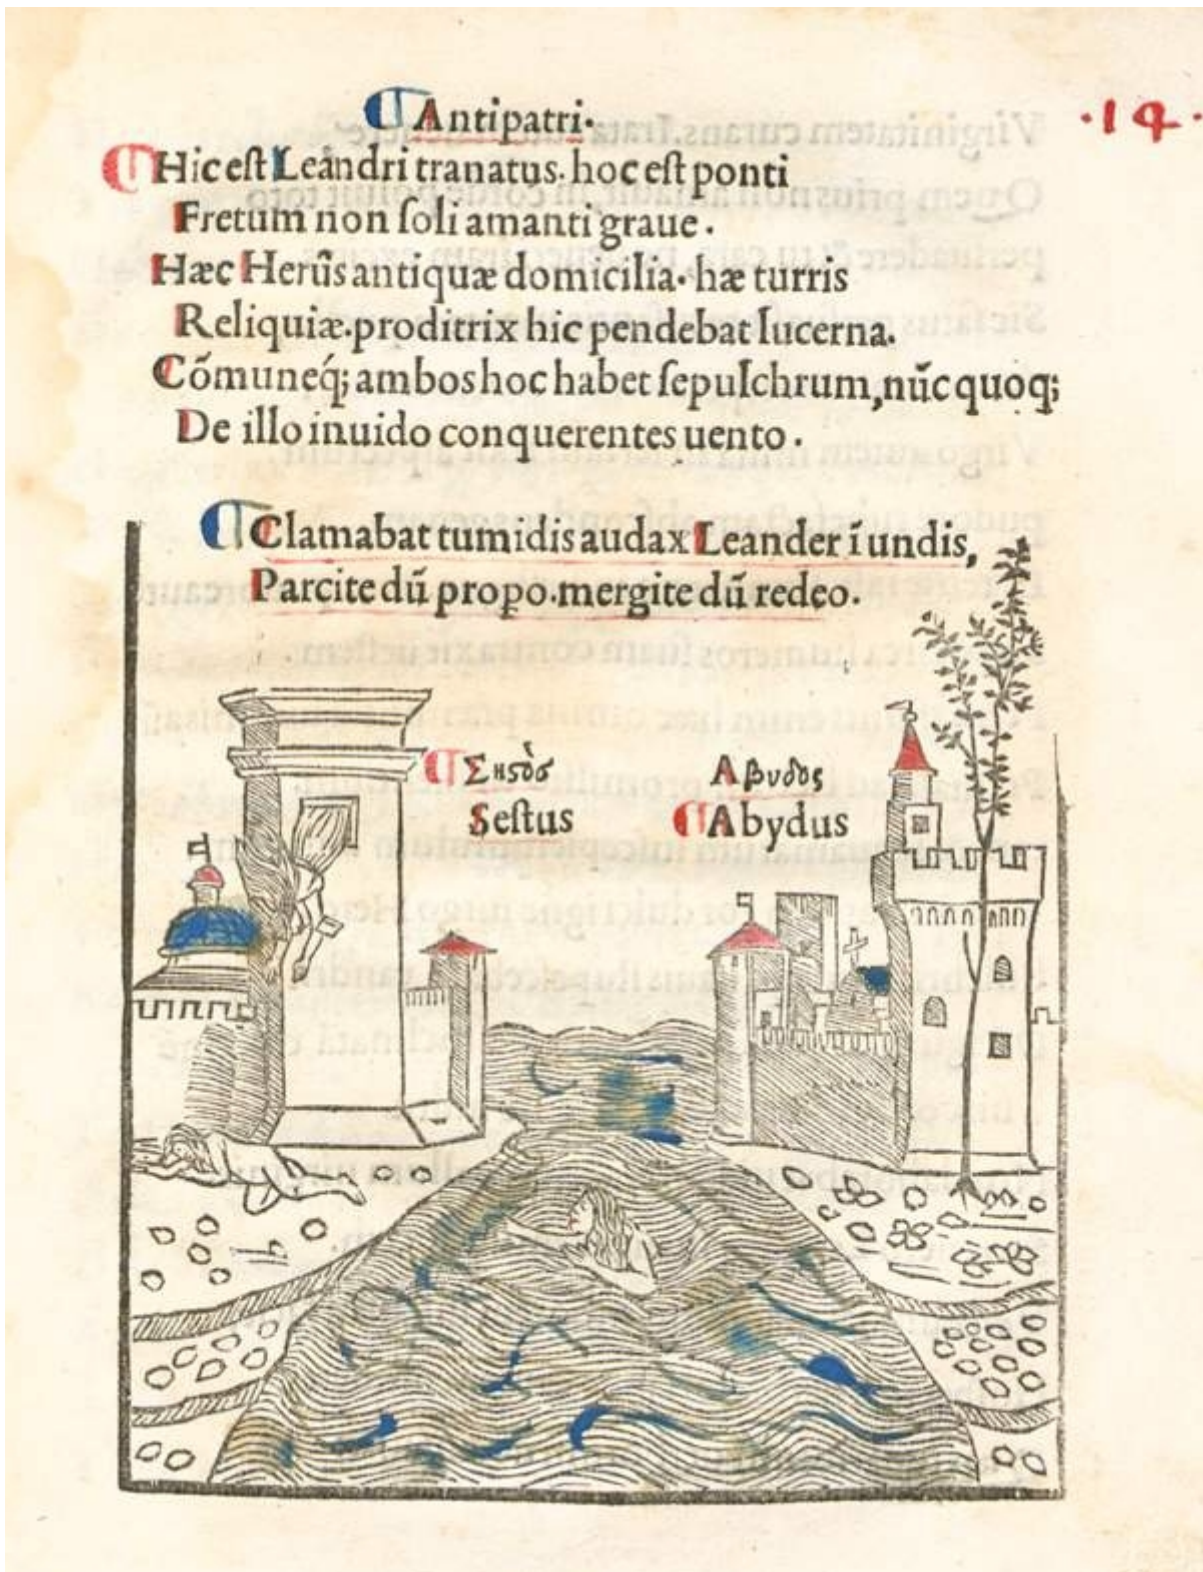 ·14·
¶ Antipatri.
¶ Hic est Leandri tranatus. hoc est ponti
Fretum non soli amanti graue.
Hæc Herūs antiquæ domicilia. hæ turris
Reliquiæ. proditrix hic pendebat lucerna.
Cōmuneq́; ambos hoc habet sepulchrum, nūc quoq;
De illo inuido conquerentes uento.
¶ Clamabat tumidis audax Leander ī undis,
Parcite dū propo. mergite dū redeo.
¶ Σηστὸσ
Sestus
Αβυδος
¶ Abydus